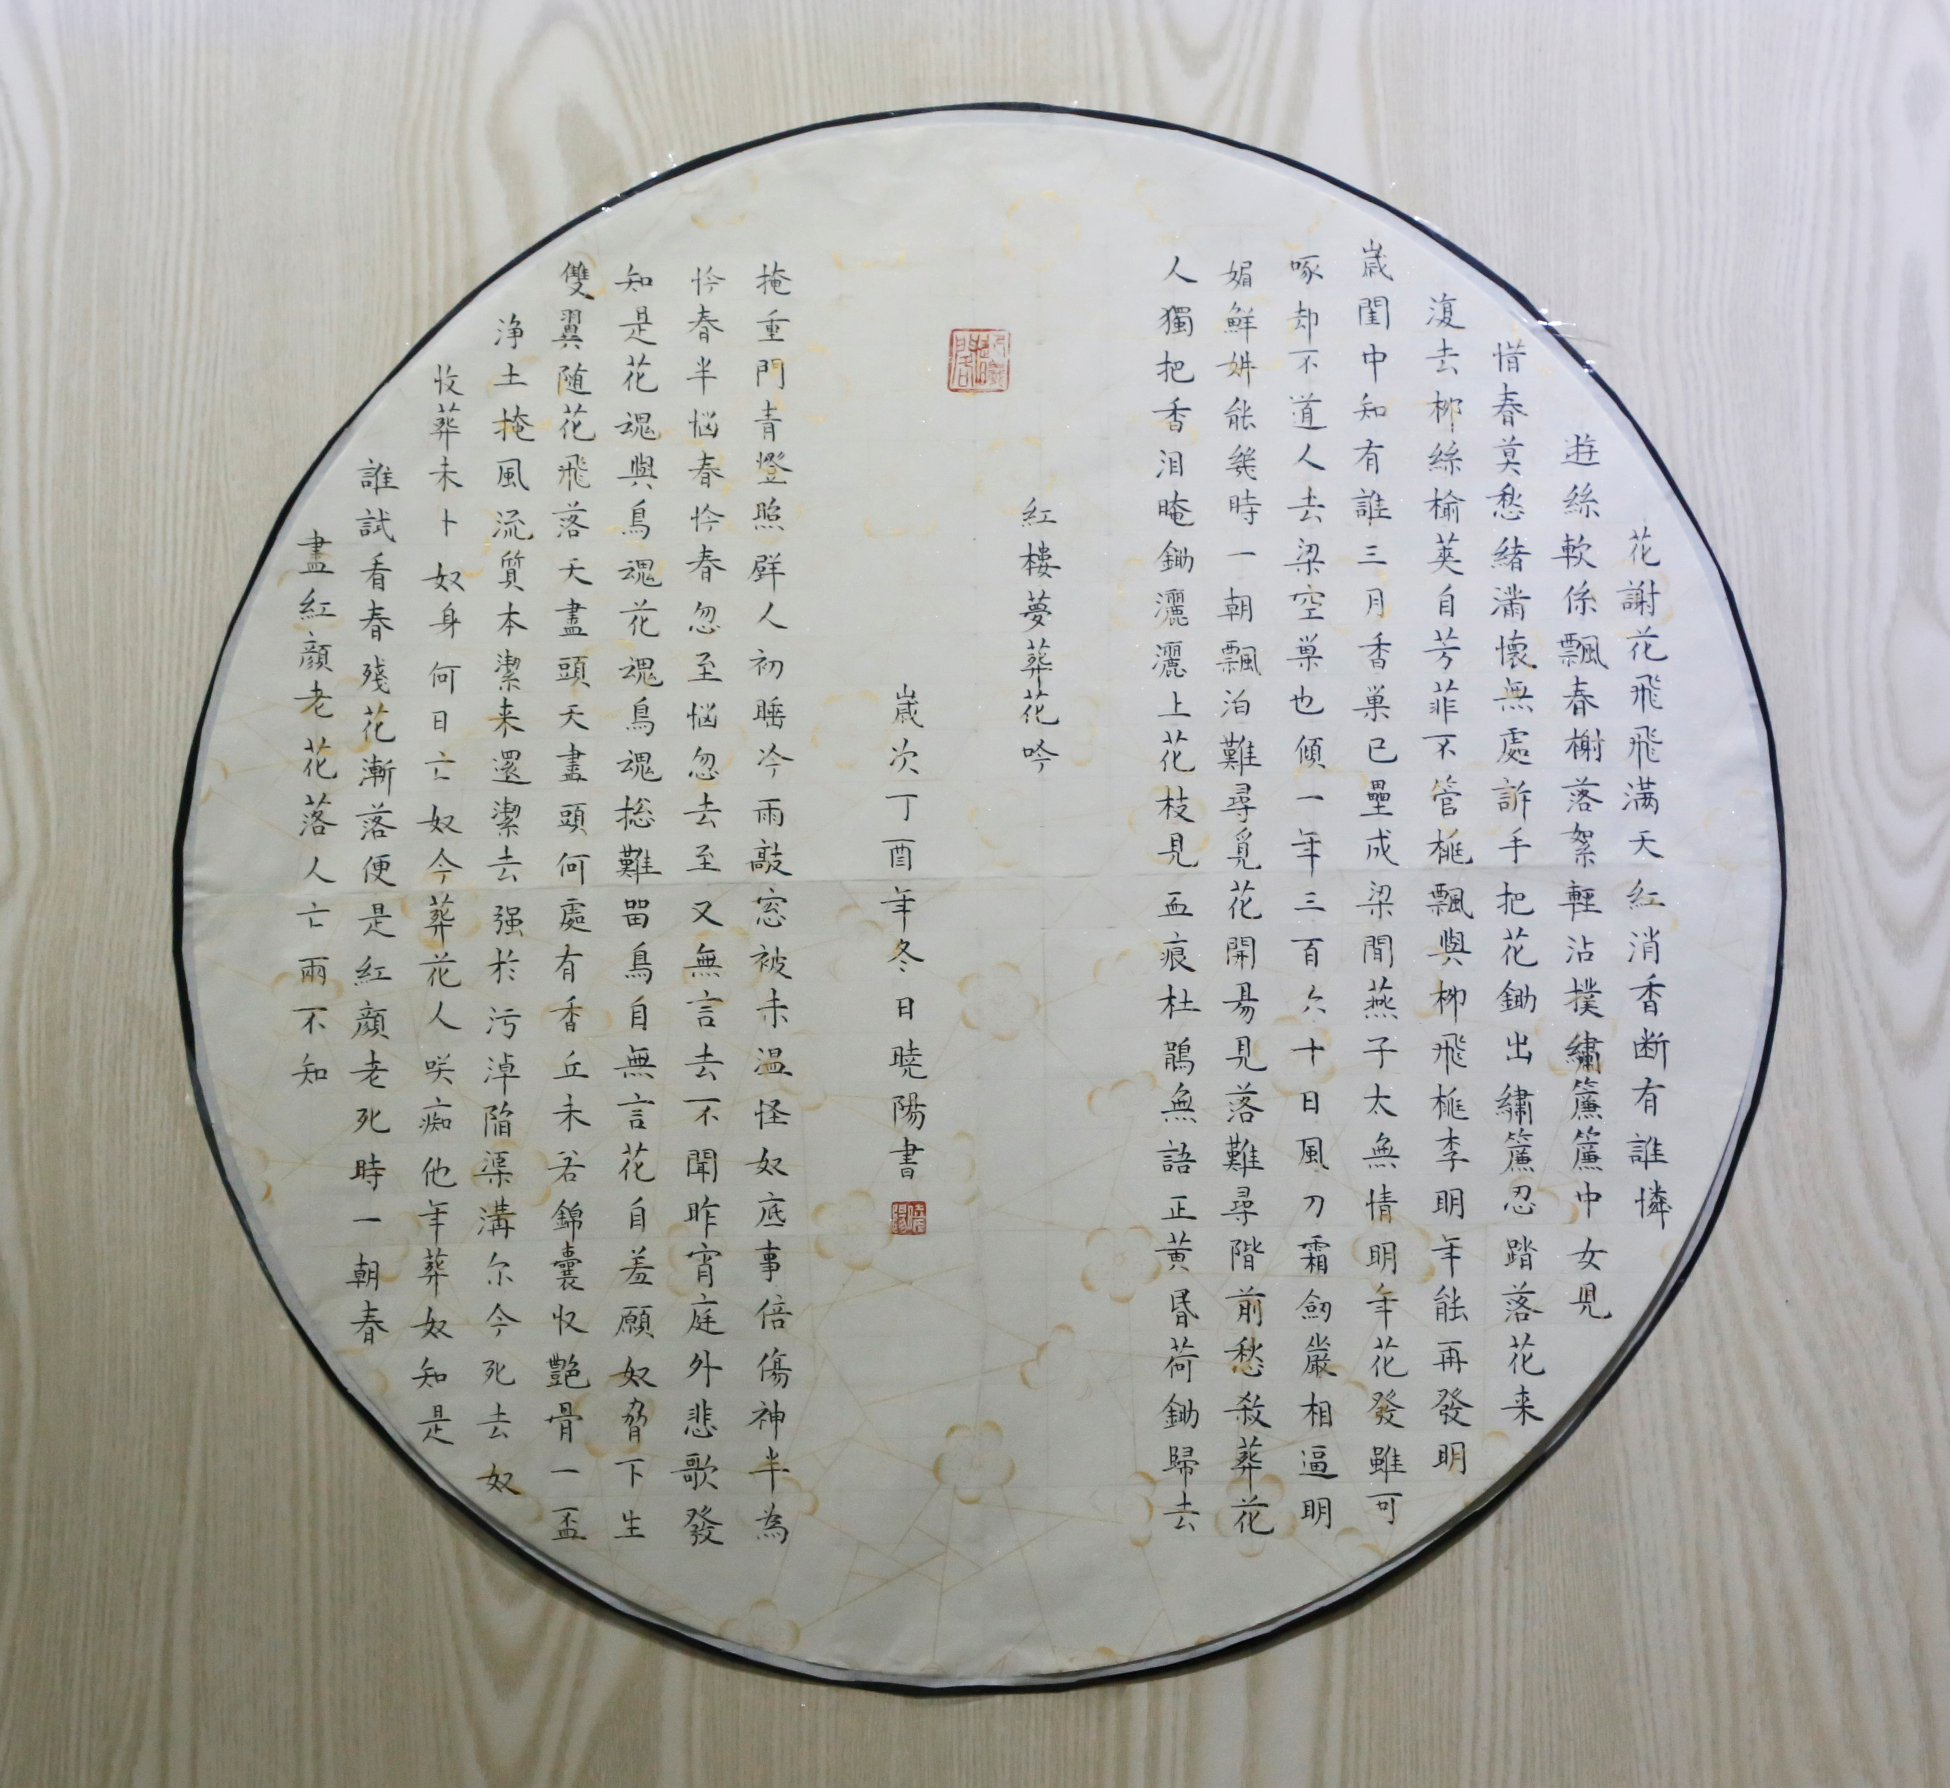 花謝花飛飛满天紅消香断有誰憐
遊絲軟係飄春榭落絮輕沾撲繡簾簾中女児
惜春莫愁緒滿懷無處訴手把花鋤出繡簾忍踏落花来
復去柳絲榆莢自芳菲不管桃飄與柳飛桃李明年能再發明
歲閨中知有誰三月香巢已壘成梁間燕子太無情明年花發雖可
啄却不道人去梁空巢也傾一年三百六十日風刀霜劒嚴相逼明
媚鮮妍能幾時一朝飄泊難尋覓花開易見落難尋階前愁殺葬花
人獨把香泪唵鋤灑灑上花枝見血痕杜鵑無語正黄昏荷鋤歸去
紅樓夢葬花吟
歲次丁酉年冬日曉陽書
曉陽
掩重門青燈照壁人初睡冷雨敲窓被未温怪奴底事倍傷神半為
怜春半惱春怜春忽至惱忽去至又無言去不聞昨宵庭外悲歌發
知是花魂與鳥魂花魂鳥魂捴難留鳥自無言花自羞願奴脅下生
雙翼随花飛落天盡頭天盡頭何處有香丘未若錦囊収艷骨一盃
浄土掩風流質本潔来還潔去强於污淖陷渠溝尔今死去奴
收葬未卜奴身何日亡奴今葬花人咲痴他年葬奴知是
誰試看春殘花漸落便是紅顔老死時一朝春
盡紅顔老花落人亡兩不知